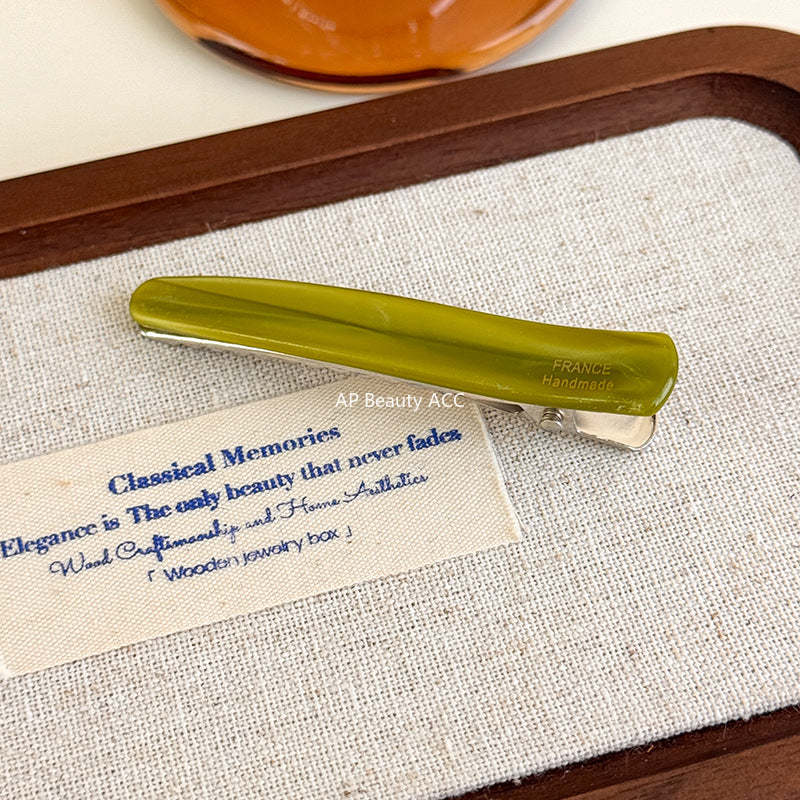 FRANCE
Handmade
AP Beauty ACC
Classical Memories
Elegance is The only beauty that never fades
Wood Craftsmanship and Home Aesthetics
「 Wooden jewelry box 」